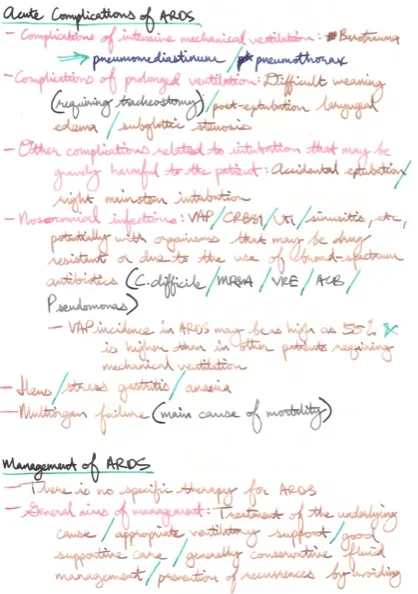 Acute Complications of ARDS
- Complications of intensive mechanical ventilation: Barotrauma
⇒ pneumomediastinum / pneumothorax
- Complications of prolonged ventilation: Difficult weaning
(requiring tracheostomy) / post-extubation laryngeal
edema / subglottic stenosis
- Other complications related to intubation that may be
gravely harmful to the patient: Accidental extubation /
right mainstem intubation
- Nosocomial infections: VAP / CRBSI / UTI / sinusitis, etc,
potentially with organisms that may be drug
resistant or due to the use of broad-spectrum
antibiotics (C. difficile / MRSA / VRE / ACB /
Pseudomonas)
- VAP incidence in ARDS may be as high as 55% &
is higher than in other patients requiring
mechanical ventilation
- Ileus / stress gastritis / anemia
- Multiorgan failure (main cause of mortality)
Management of ARDS
- There is no specific therapy for ARDS
- General aims of management: Treatment of the underlying
cause / appropriate ventilatory support / good
supportive care / generally conservative fluid
management / prevention of recurrences by avoiding